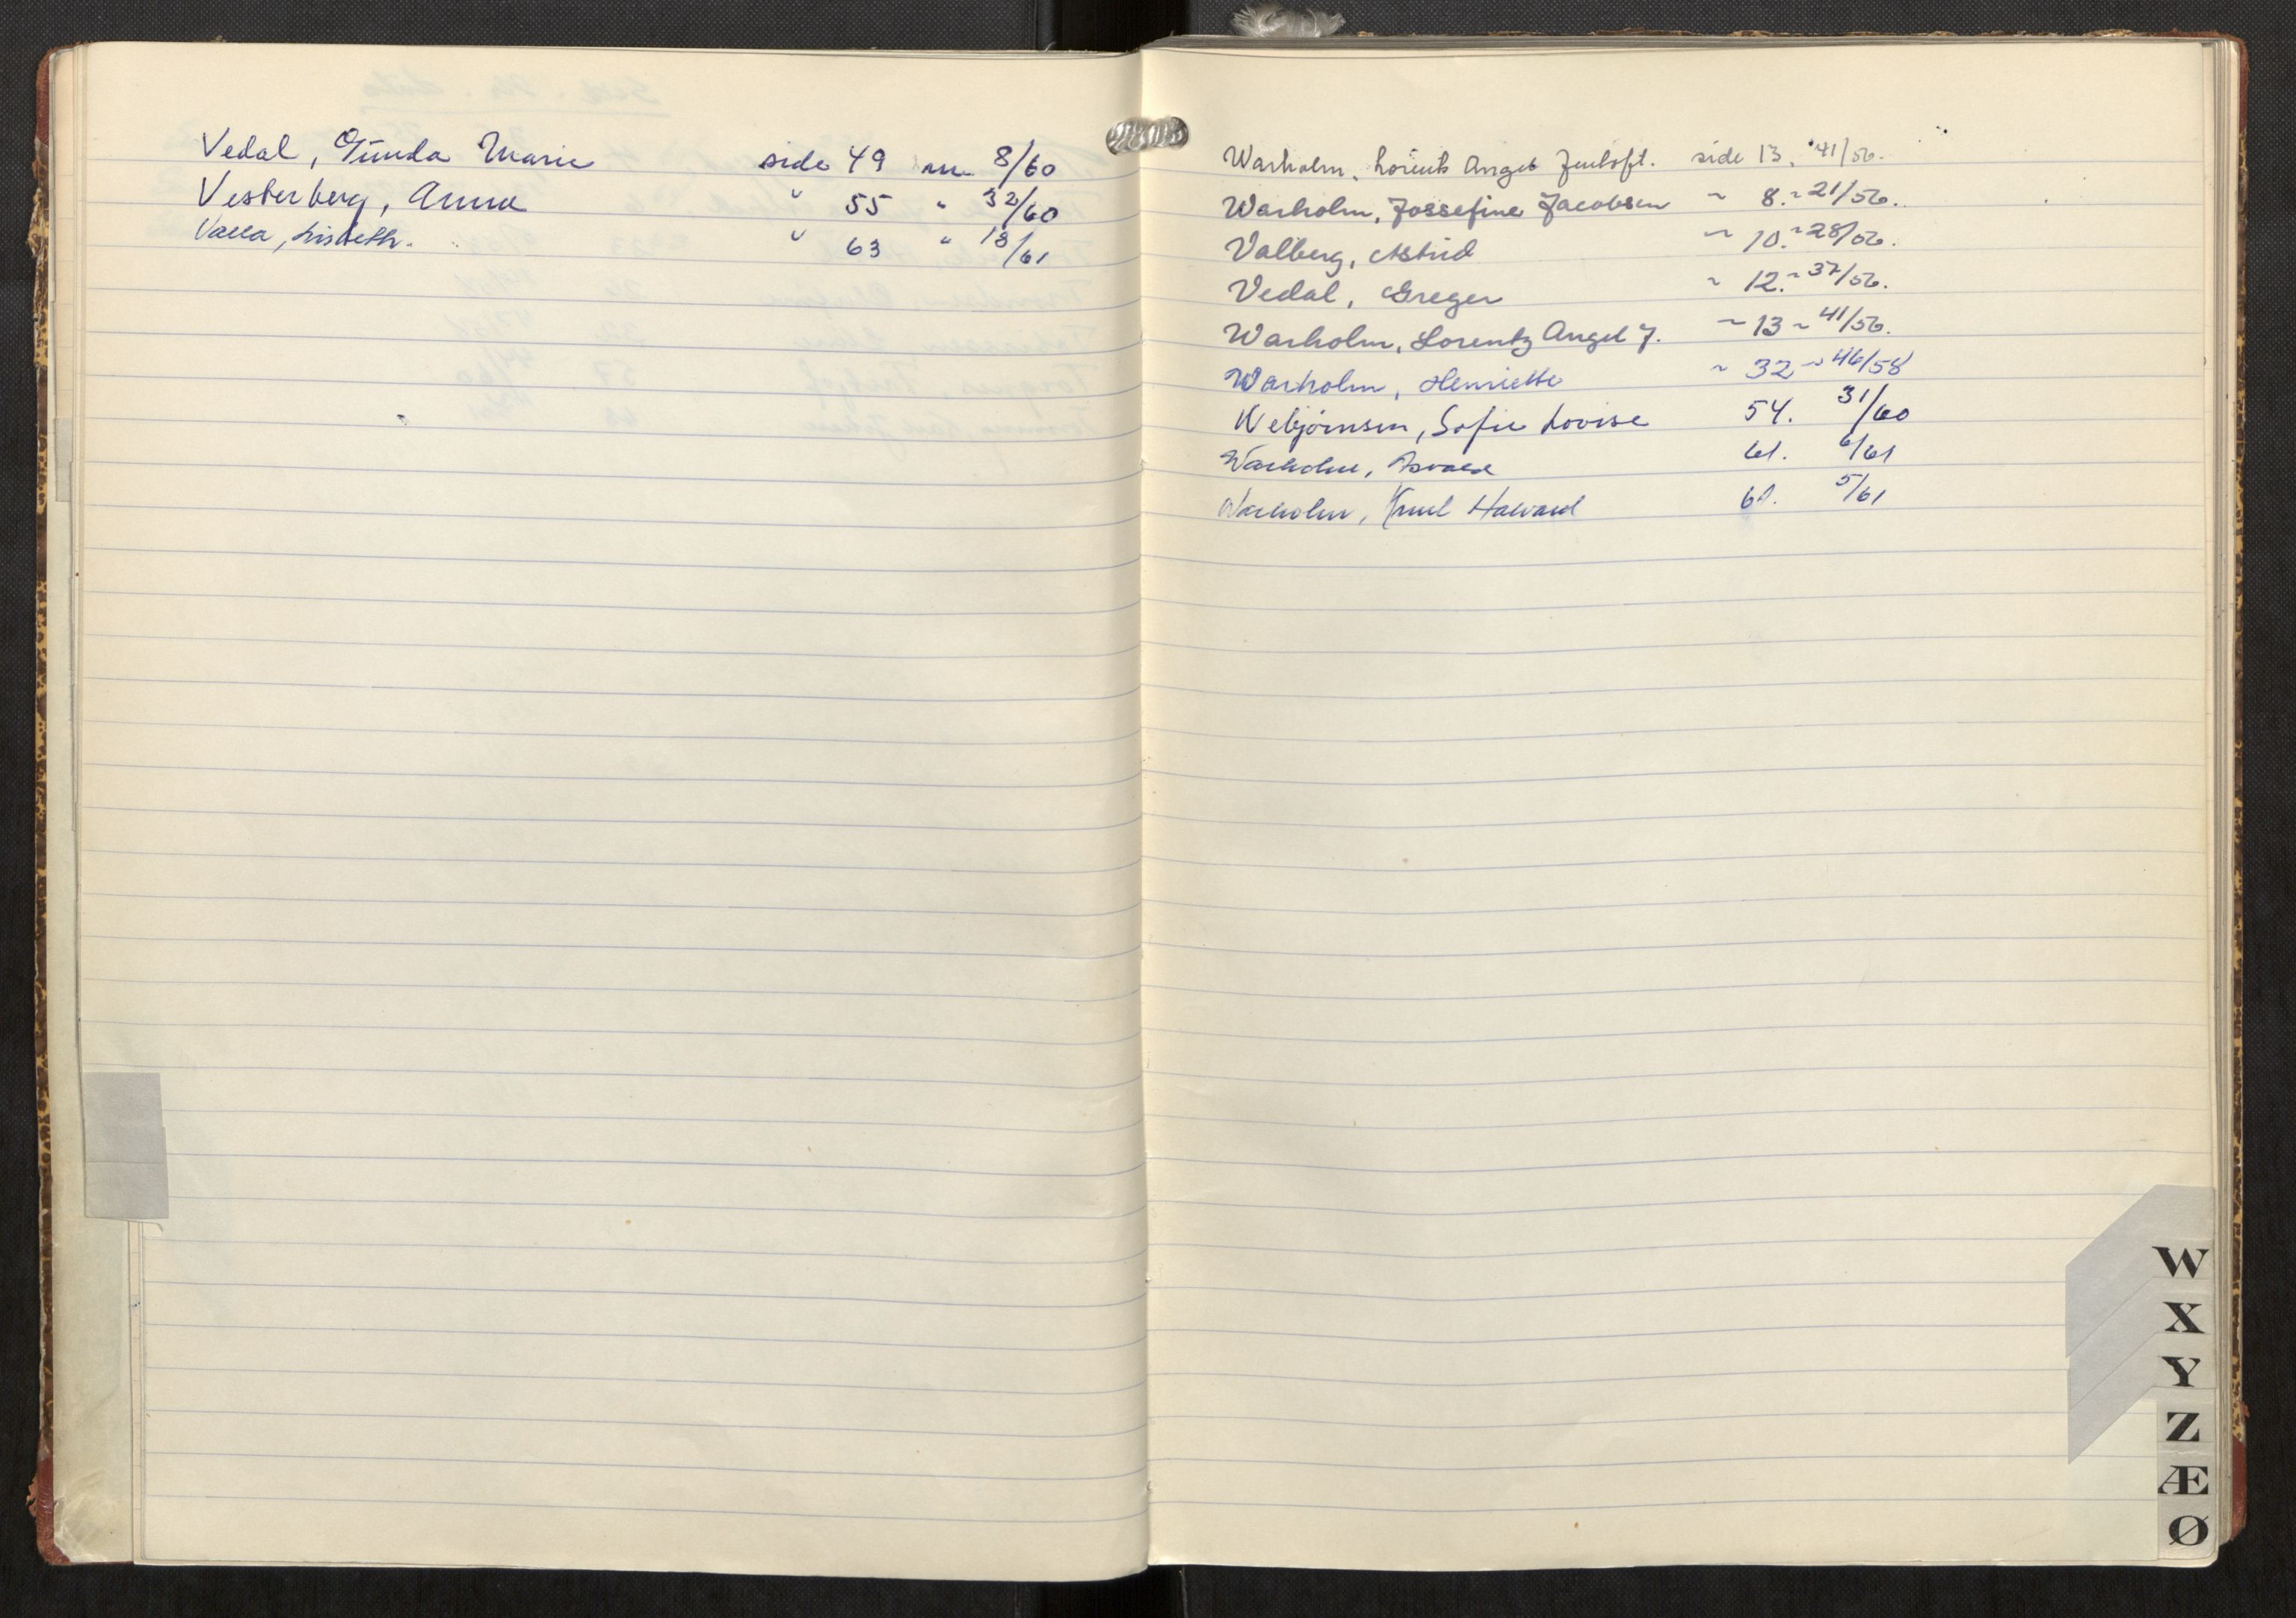 Vedal, Gunda Marie side 49 nr. 8/60
Vesterberg, Anna " 55 " 32/60
Valla, Lisbeth. " 63 " 18/61
Warholm, Lorents Angel side 13. 41/56.
Warholm, Jossefine Jacobsen ~ 8. ~ 21/56.
Valberg, Astrid ~ 10. ~ 28/56.
Vedal, Greger ~ 12. ~ 37/56.
Warholm, Lorentz Angel J. ~ 13 ~ 41/56.
Warholm, Henriette ~ 32 ~ 46/58
Webjørnsen, Sofie Lovise 54. 31/60
Warholm, 61. 6/61
Warholm, Knut Halvard 5/61
W
X
Y
Z
Æ
Ø